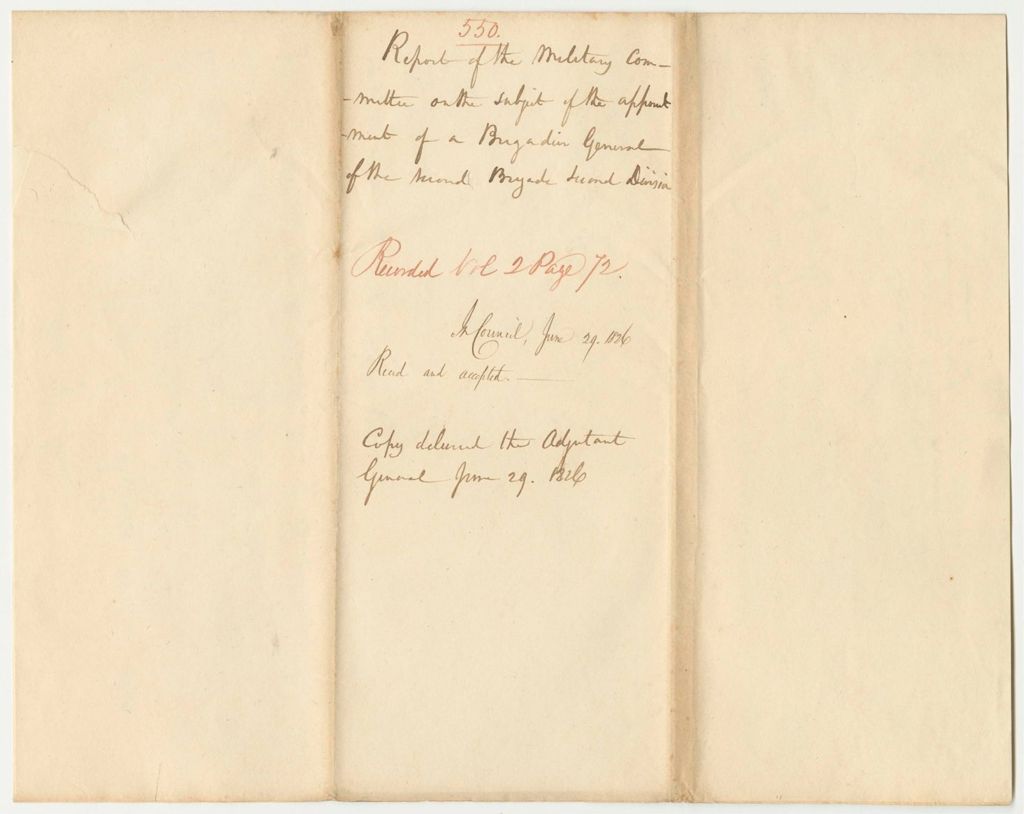 550.
Report of the Military Com-
-mittee on the subject of the appoint
-ment of a Brigadier General
of the second Brigade second Division
Recorded Vol 2 Page 72.
In Council, June 29. 1826
Read and accepted.
Copy delivered the Adjutant
General June 29. 1826